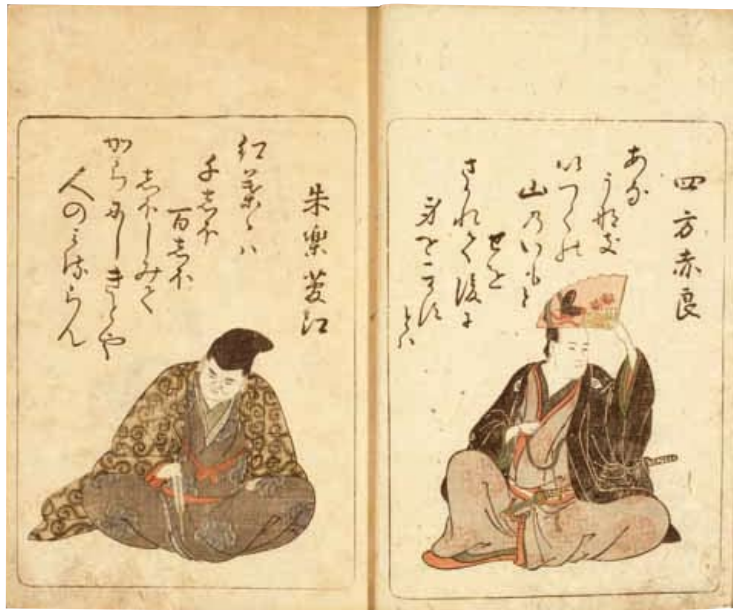 四方赤良
あな
うなき
いつくの
山乃いもと
せを
さかれて後に
身をこかす
とハ
朱樂菅江
紅葉々ハ
千しほ
百しほ
しほしみて
からにしきとや
人のみるらん